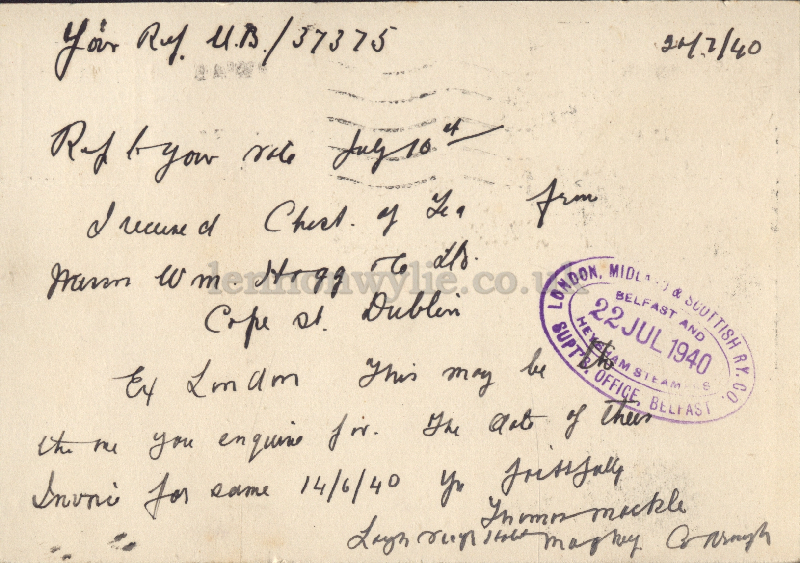 Your Ref. U.B./37375
20/7/40
Ref to your note July 10th
I received Chest. of Tea from
Messrs Wm. Hogg & Co Ltd.
Cope St. Dublin
Ex London This may be the
the one you enquire for. The date of their
Invoice for same 14/6/40 Yrs faithfully
Thomas Mackle
Maghery Co Armagh
LONDON, MIDLAND & SCOTTISH RY. CO.
BELFAST AND
22 JUL 1940
HEYSHAM STEAMERS
SUPT'S. OFFICE, BELFAST
lennonwylie.co.uk